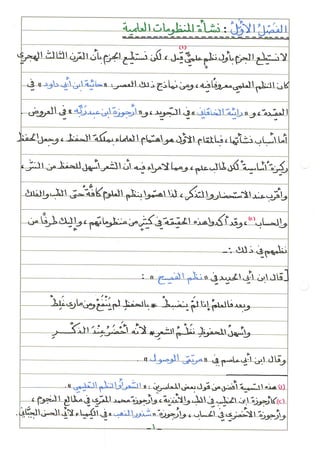 الفَصْلُ الأَوَّلُ: نشأة المنظومات العلمية
لا نستطيع الجزم بأول نظم علميٍّ(١) قيل، لكن نستطيع الجزم بأن القرن الثالث الهجري
كان النظم العلمي معروفًا فيه، ومن نماذج ذلك العصر: «حائية ابن أبي داود» في
العقيدة، و«رائية الخاقاني» في التجويد، و«أرجوزة ابن عبد ربّه» في العروض
أما أسباب نشأتها، فبالمقام الأول هو اهتمام العلماء بملكة الحفظ، وجعل الحفظ
ركيزة أساسية لكل طالب علم، ومما لا مراء فيه أن الشعر أسهل للحفظ من النثر،
وأقرب عند الاستحضار والتذكر، لذا اهتموا بنظم العلوم كافَّةً حتى الطب والفلك
والحساب(٢)، وقد أكدوا هذه الحقيقة في كثيرٍ من منظوماتهم، وإليك طرفًا من
نظمهم في ذلك :ـ
قال ابن أبي الحديد في «نظم الفصيح»:
وبعد فالعلمُ إذا لم ينضبطْ * بالحفظِ لم ينفعْ ومن مارى غلِطْ
وأسهلُ المحفوظِ نظمُ الشعرِ * لأنه أَحْضَرُ عندَ الذكْرِ
وقال ابن أبي عاصم في «مرتقى الوصول»
(١) هذه التسمية أفضل من قول بعض المعاصرين: «الشعر أو النظم التعليمي»
(٢) كأرجوزة ابن الخطيب في الطب والأغذية، وأرجوزة محمد المقري في مطالع النجوم،
وأرجوزة الأخضري في الحساب، وأرجوزة «شذور الذهب» في الكيمياء لأبي الحسن الجيَّاني.
-١-